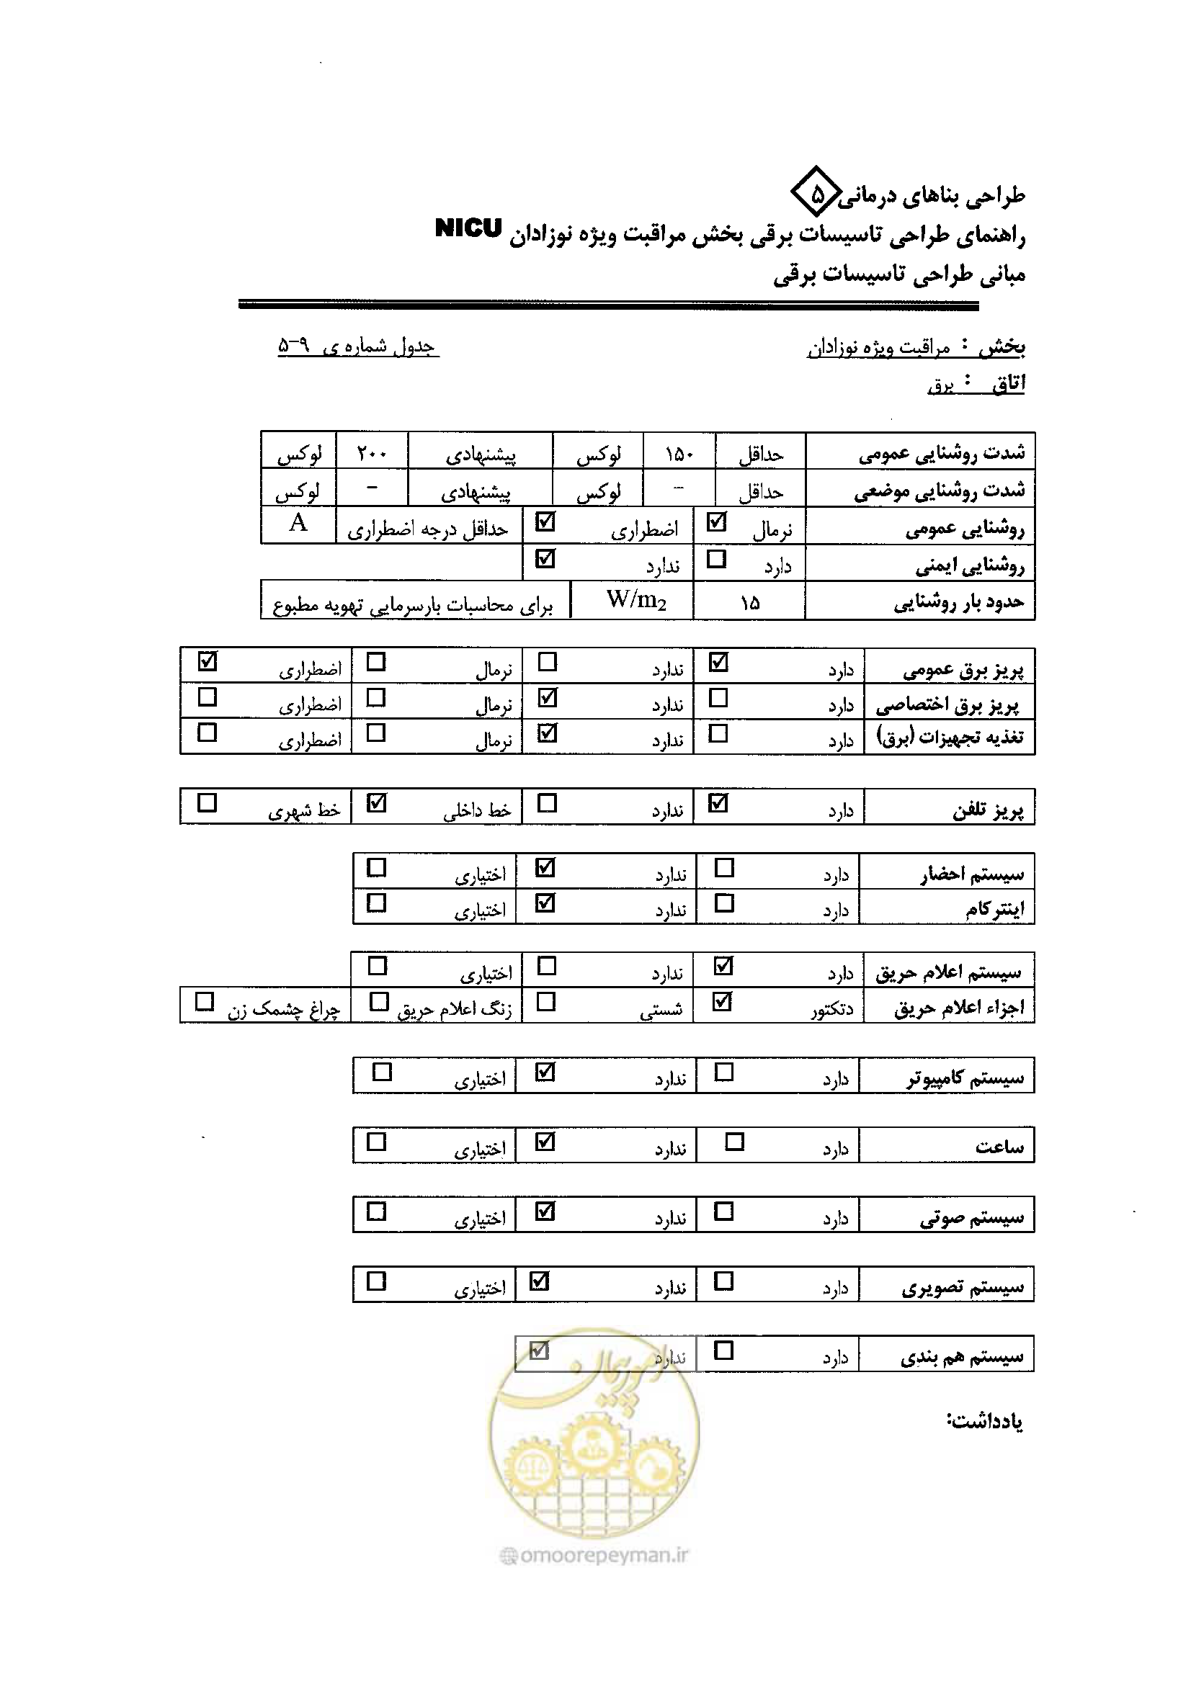 طراحی بناهای درمانی ۵
راهنمای طراحی تاسیسات برقی بخش مراقبت ویژه نوزادان NICU
مبانی طراحی تاسیسات برقی
بخش : مراقبت ویژه نوزادان جدول شماره ی ۹-۵
اتاق : برق
شدت روشنایی عمومی حداقل ۱۵۰ لوکس پیشنهادی ۲۰۰ لوکس
شدت روشنایی موضعی حداقل – لوکس پیشنهادی – لوکس
روشنایی عمومی نرمال ☑ اضطراری ☑ حداقل درجه اضطراری A
روشنایی ایمنی دارد ☐ ندارد ☑
حدود بار روشنایی ۱۵ W/m2 برای محاسبات بارسرمایی تهویه مطبوع
پریز برق عمومی دارد ☑ ندارد ☐ نرمال ☐ اضطراری ☑
پریز برق اختصاصی دارد ☐ ندارد ☑ نرمال ☐ اضطراری ☐
تغذیه تجهیزات (برق) دارد ☐ ندارد ☑ نرمال ☐ اضطراری ☐
پریز تلفن دارد ☑ ندارد ☐ خط داخلی ☑ خط شهری ☐
سیستم احضار دارد ☐ ندارد ☑ اختیاری ☐
اینترکام دارد ☐ ندارد ☑ اختیاری ☐
سیستم اعلام حریق دارد ☑ ندارد ☐ اختیاری ☐
اجزاء اعلام حریق دتکتور ☑ شستی ☐ زنگ اعلام حریق ☐ چراغ چشمک زن ☐
سیستم کامپیوتر دارد ☐ ندارد ☑ اختیاری ☐
ساعت دارد ☐ ندارد ☑ اختیاری ☐
سیستم صوتی دارد ☐ ندارد ☑ اختیاری ☐
سیستم تصویری دارد ☐ ندارد ☑ اختیاری ☐
سیستم هم بندی دارد ☐ ندارد ☑
یادداشت:
امور پیمان
@omoorepeyman.ir